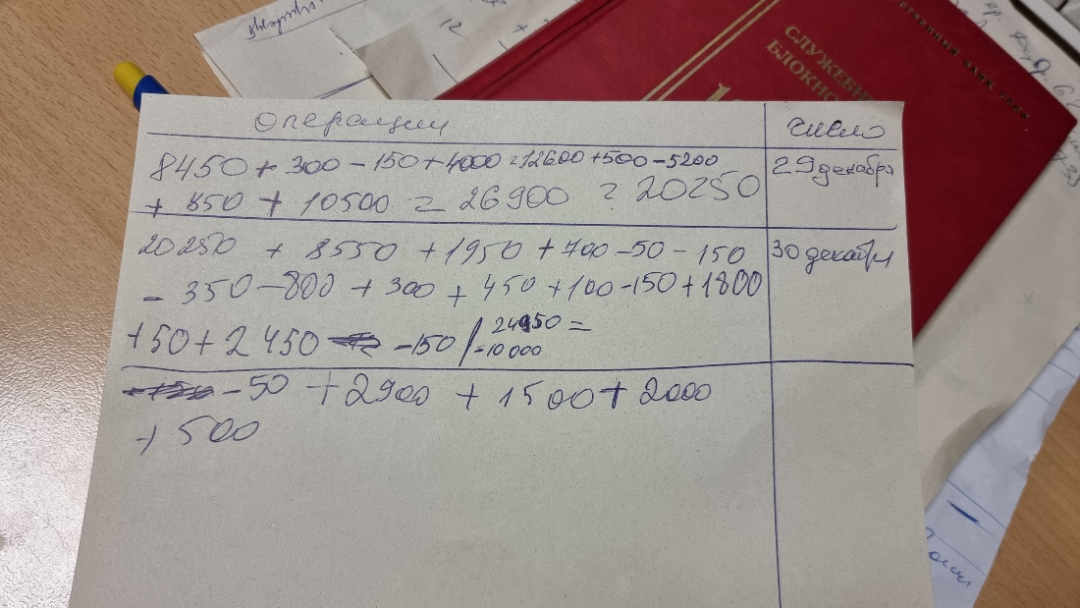 12
СЛУЖЕБН
БЛОКНО
операции
число
8450 + 300 - 150 + 4000 = 12600 + 500 - 5200
29 декабря
+ 850 + 10500 = 26900 = 20250
20250 + 8550 + 1950 + 700 - 50 - 150
30 декабря
- 350 - 800 + 300 + 450 + 100 - 150 + 1800
+50 + 2450 - 150 / 24950 =
-10000
-50 + 2900 + 1500 + 2000
+ 500